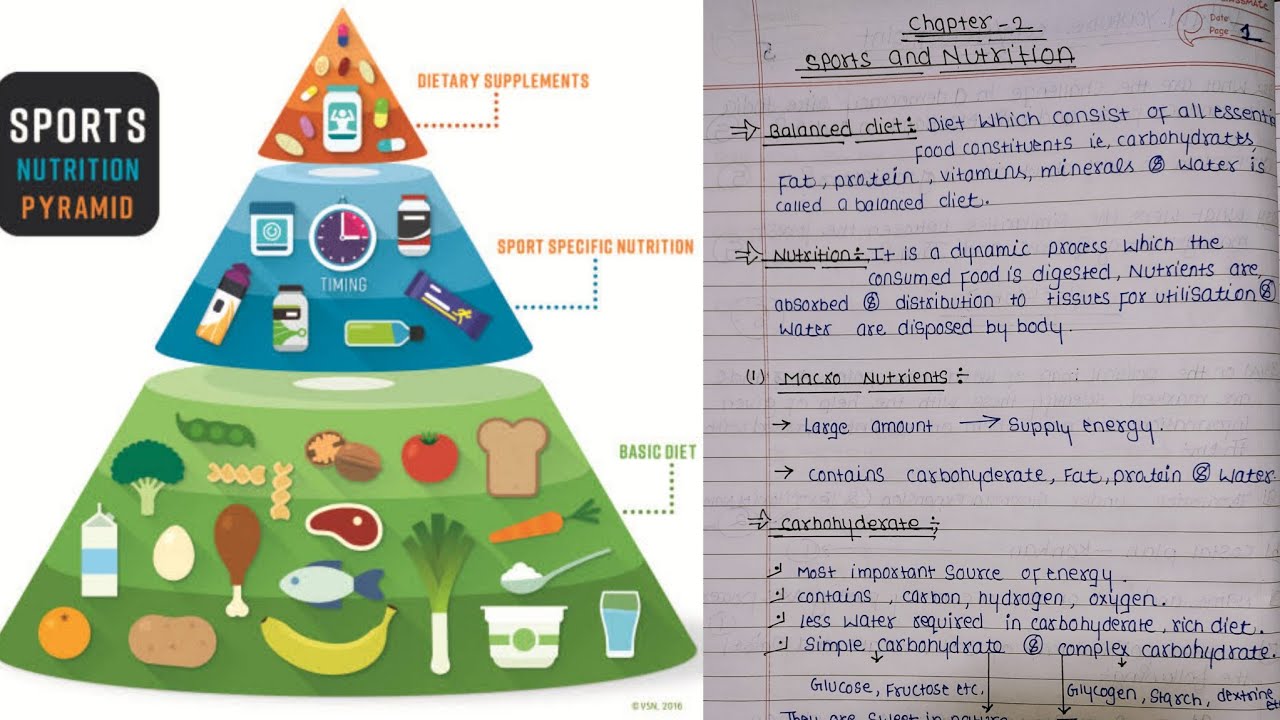 SPORTS
NUTRITION
PYRAMID
DIETARY SUPPLEMENTS
TIMING
SPORT SPECIFIC NUTRITION
BASIC DIET
©VSN, 2016
CLASSMATE
Date
Page 1
Chapter - 2
Sports and Nutrition
⇒ Balanced diet :- Diet which consist of all essent
food constituents ie, carbohydrates,
Fat, protein, vitamins, minerals & water is
called a balanced diet.
⇒ Nutrition :- It is a dynamic process which the
consumed food is digested, Nutrients are
absorbed & distribution to tissues for utilisation &
water are disposed by body.
(1) Macro Nutrients :-
→ Large amount → Supply energy.
→ contains carbohyderate, Fat, protein & water.
⇒ Carbohyderate :-
Most important source of energy.
contains, carbon, hydrogen, oxygen.
less water required in carbohyderate, rich diet.
Simple carbohydrate & complex carbohydrate.
Glucose, Fructose etc. Glycogen, Starch, dextrine
They are sweet in nature